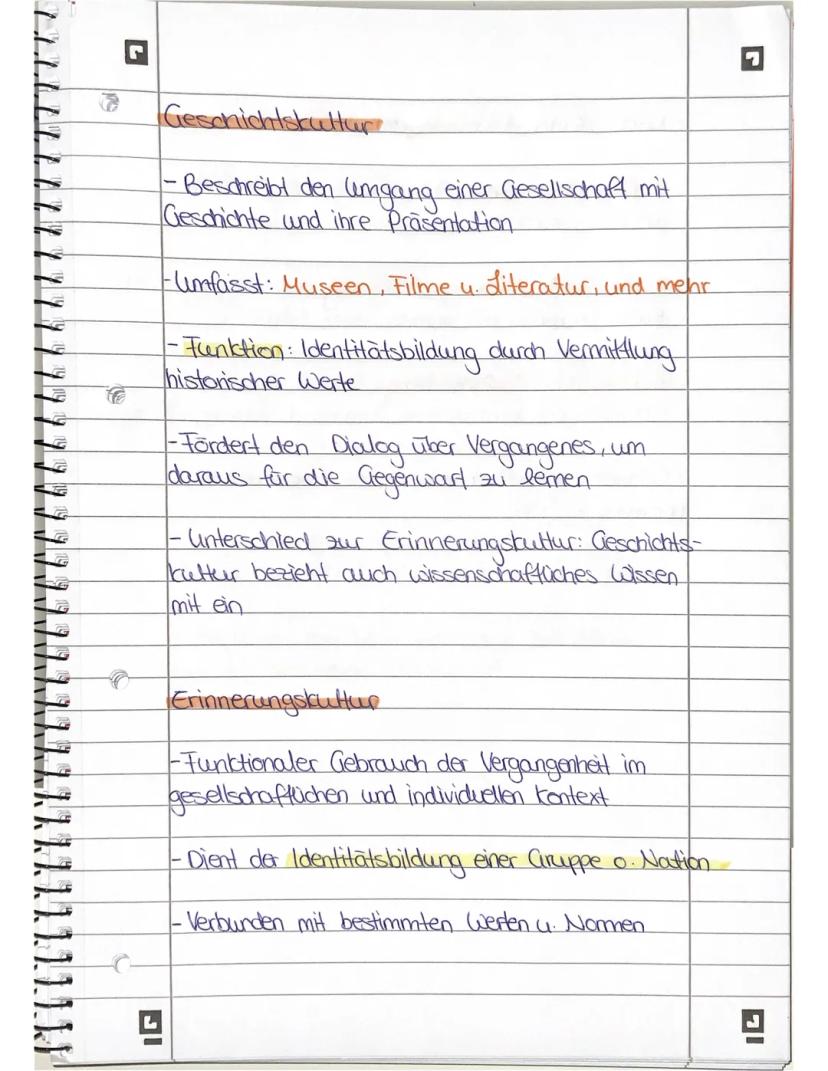 Geschichtskultur
- Beschreibt den Umgang einer Gesellschaft mit
Geschichte und ihre Präsentation
- Umfasst: Museen, Filme u. Literatur, und mehr
- Funktion: Identitätsbildung durch Vermittlung
historischer Werte
- Fördert den Dialog über Vergangenes, um
daraus für die Gegenwart zu lernen
- Unterschied zur Erinnerungskultur: Geschichts-
kultur bezieht auch wissenschaftliches Wissen
mit ein
Erinnerungskultur
- Funktionaler Gebrauch der Vergangenheit im
gesellschaftlichen und individuellen Kontext
- Dient der Identitätsbildung einer Gruppe o. Nation
- Verbunden mit bestimmten Werten u. Normen